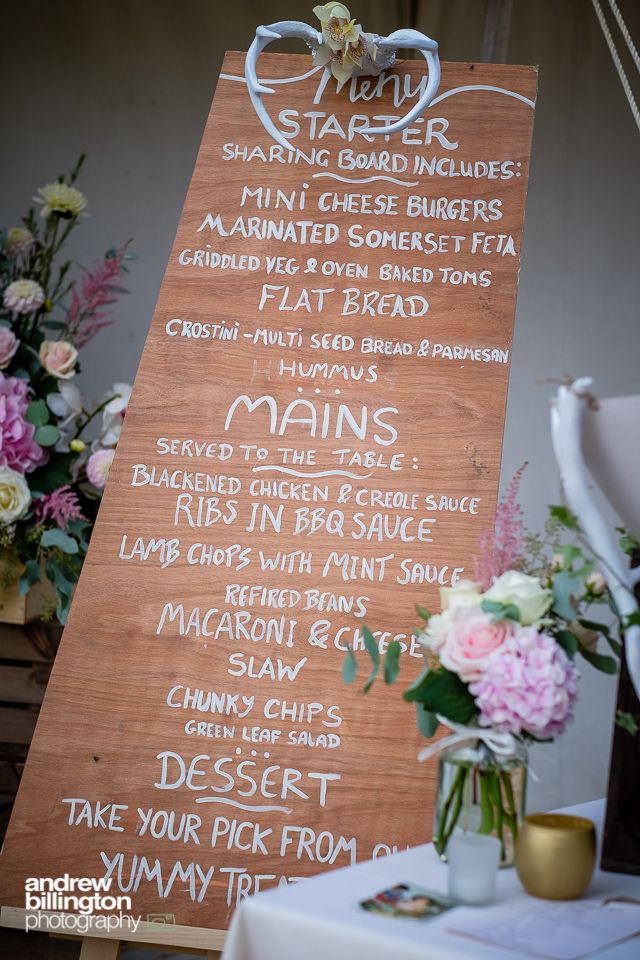 Menu
STARTER
SHARING BOARD INCLUDES:
MINI CHEESE BURGERS
MARINATED SOMERSET FETA
GRIDDLED VEG & OVEN BAKED TOMS
FLAT BREAD
CROSTINI - MULTI SEED BREAD & PARMESAN
HUMMUS
MAINS
SERVED TO THE TABLE:
BLACKENED CHICKEN & CREOLE SAUCE
RIBS IN BBQ SAUCE
LAMB CHOPS WITH MINT SAUCE
REFIRED BEANS
MACARONI & CHEESE
SLAW
CHUNKY CHIPS
GREEN LEAF SALAD
DESSERT
TAKE YOUR PICK FROM
YUMMY
andrew
billington
photography